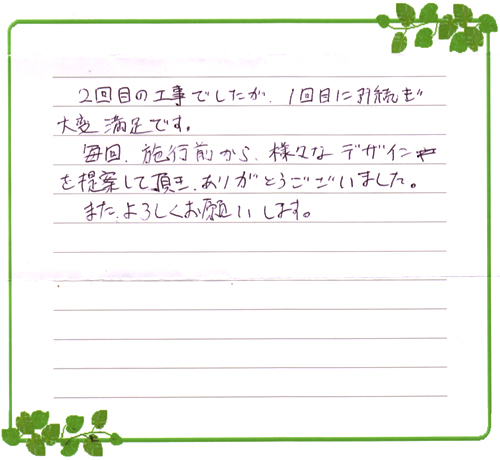 2回目の工事でしたが、1回目に引続き
大変満足です。
毎回、施行前から、様々なデザイン
を提案して頂き、ありがとうございました。
また、よろしくお願いします。